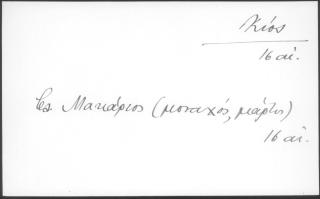 Κίος
16 αἰ.
Μακάριος (μοναχός, μάρτυς)
16 αἰ.